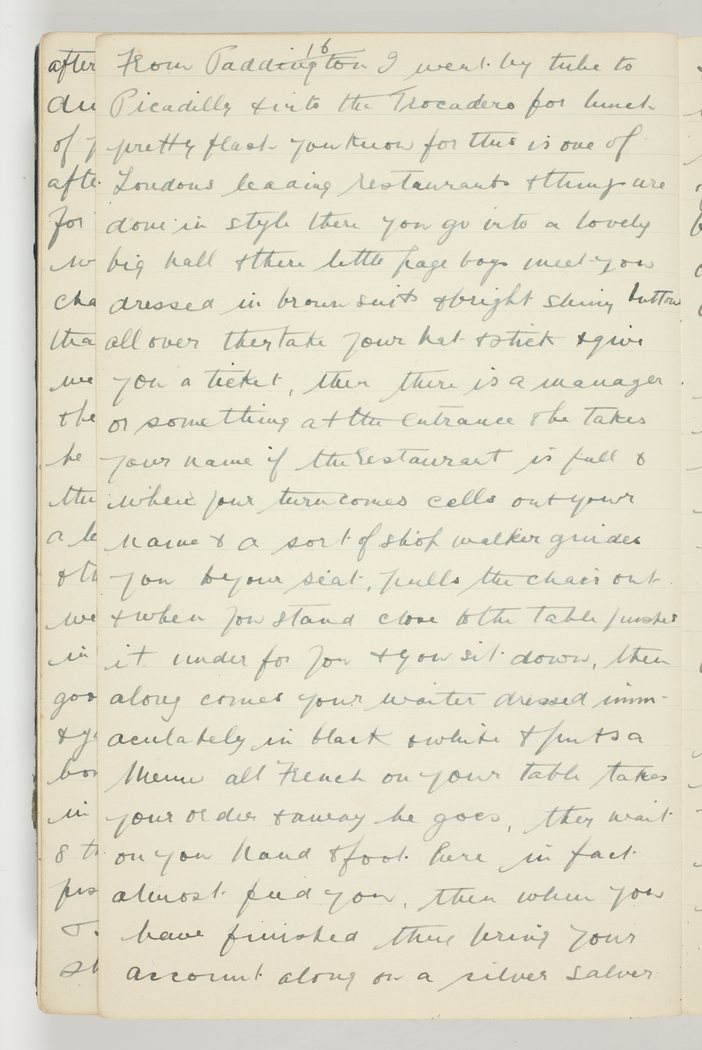 16
From Paddington I went by tube to
Picadilly & into the Trocadero for lunch
pretty flash you know for this is one of
Londons leading restaurants & things are
done in style there you go into a lovely
big hall & there little page boys meet you
dressed in brown suits & bright shiny button
all over they take your hat & stick & give
you a ticket, then there is a manager
or something at the entrance & he takes
your name if the restaurant is full &
when your turn comes calls out your
name & a sort of shop walker guides
you to your seat, pulls the chair out
& when you stand close to the table pushes
it under for you & you sit down, then
along comes your waiter dressed imm-
aculately in black & white & puts a
Menu all French on your table takes
your order & away he goes, they wait
on you hand & foot here in fact
almost feed you, then when you
have finished they bring your
account along on a silver salver